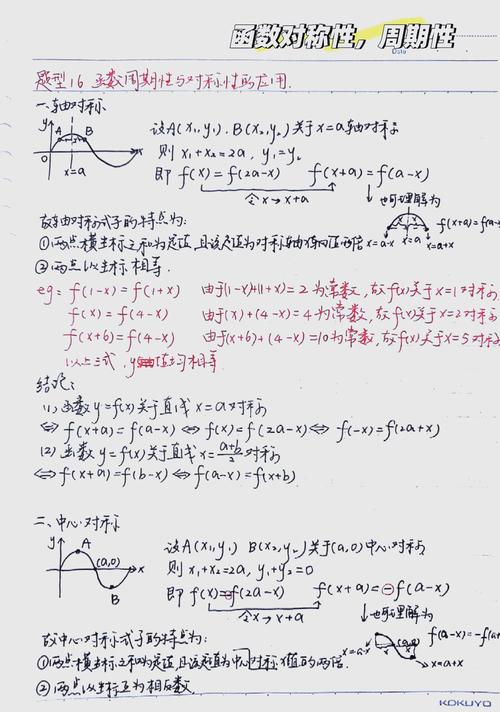 函数对称性，周期性
Date
题型16 函数周期性与对称性的应用.
一、轴对称
y A B
O x
x=a
设A(x₁,y₁).B(x₂,y₂)关于x=a轴对称
则 x₁+x₂=2a, y₁=y₂
即 f(x)=f(2a-x) f(x+a)=f(a-x)
令x→x+a
也可理解为
f(x+a)=f(a-x
x=a-x x=a x=a+x
故轴对称式子的特点为:
①两点横坐标之和为定值,且该定值为对称轴x方向值两倍
②两点纵坐标相等.
eg: f(1-x)=f(1+x) 由于(1-x)+(1+x)=2为常数,故f(x)关于x=1对称
f(x)=f(4-x) 由于(x)+(4-x)=4为常数,故f(x)关于x=2对称
f(x+6)=f(4-x) 由于(x+6)+(4-x)=10为常数,故f(x)关于x=5对称
以上三式,y值均相等
结论:
(1)函数y=f(x)关于直线x=a对称
⇔f(x+a)=f(a-x)⇔f(x)=f(2a-x)⇔f(-x)=f(2a+x)
(2)函数y=f(x)关于直线x=(a+b)/2对称
⇔f(x+a)=f(b-x)⇔f(a-x)=f(x+b)
二、中心对称
y A
(a,0) x
B
设A(x₁,y₁) B(x₂,y₂)关于(a,0)中心对称
则 x₁+x₂=2a, y₁+y₂=0
即 f(x)=-f(2a-x) f(x+a)=-f(a-x)
令x→x+a
也可理解为
f(a-x)=-f(a
x=a-x (a,0) x=a+x
故中心对称式子的特点为:
①两点横坐标之和为定值,且该定值为中心对称x值的两倍.
②两点纵坐标互为相反数.
KOKUYO